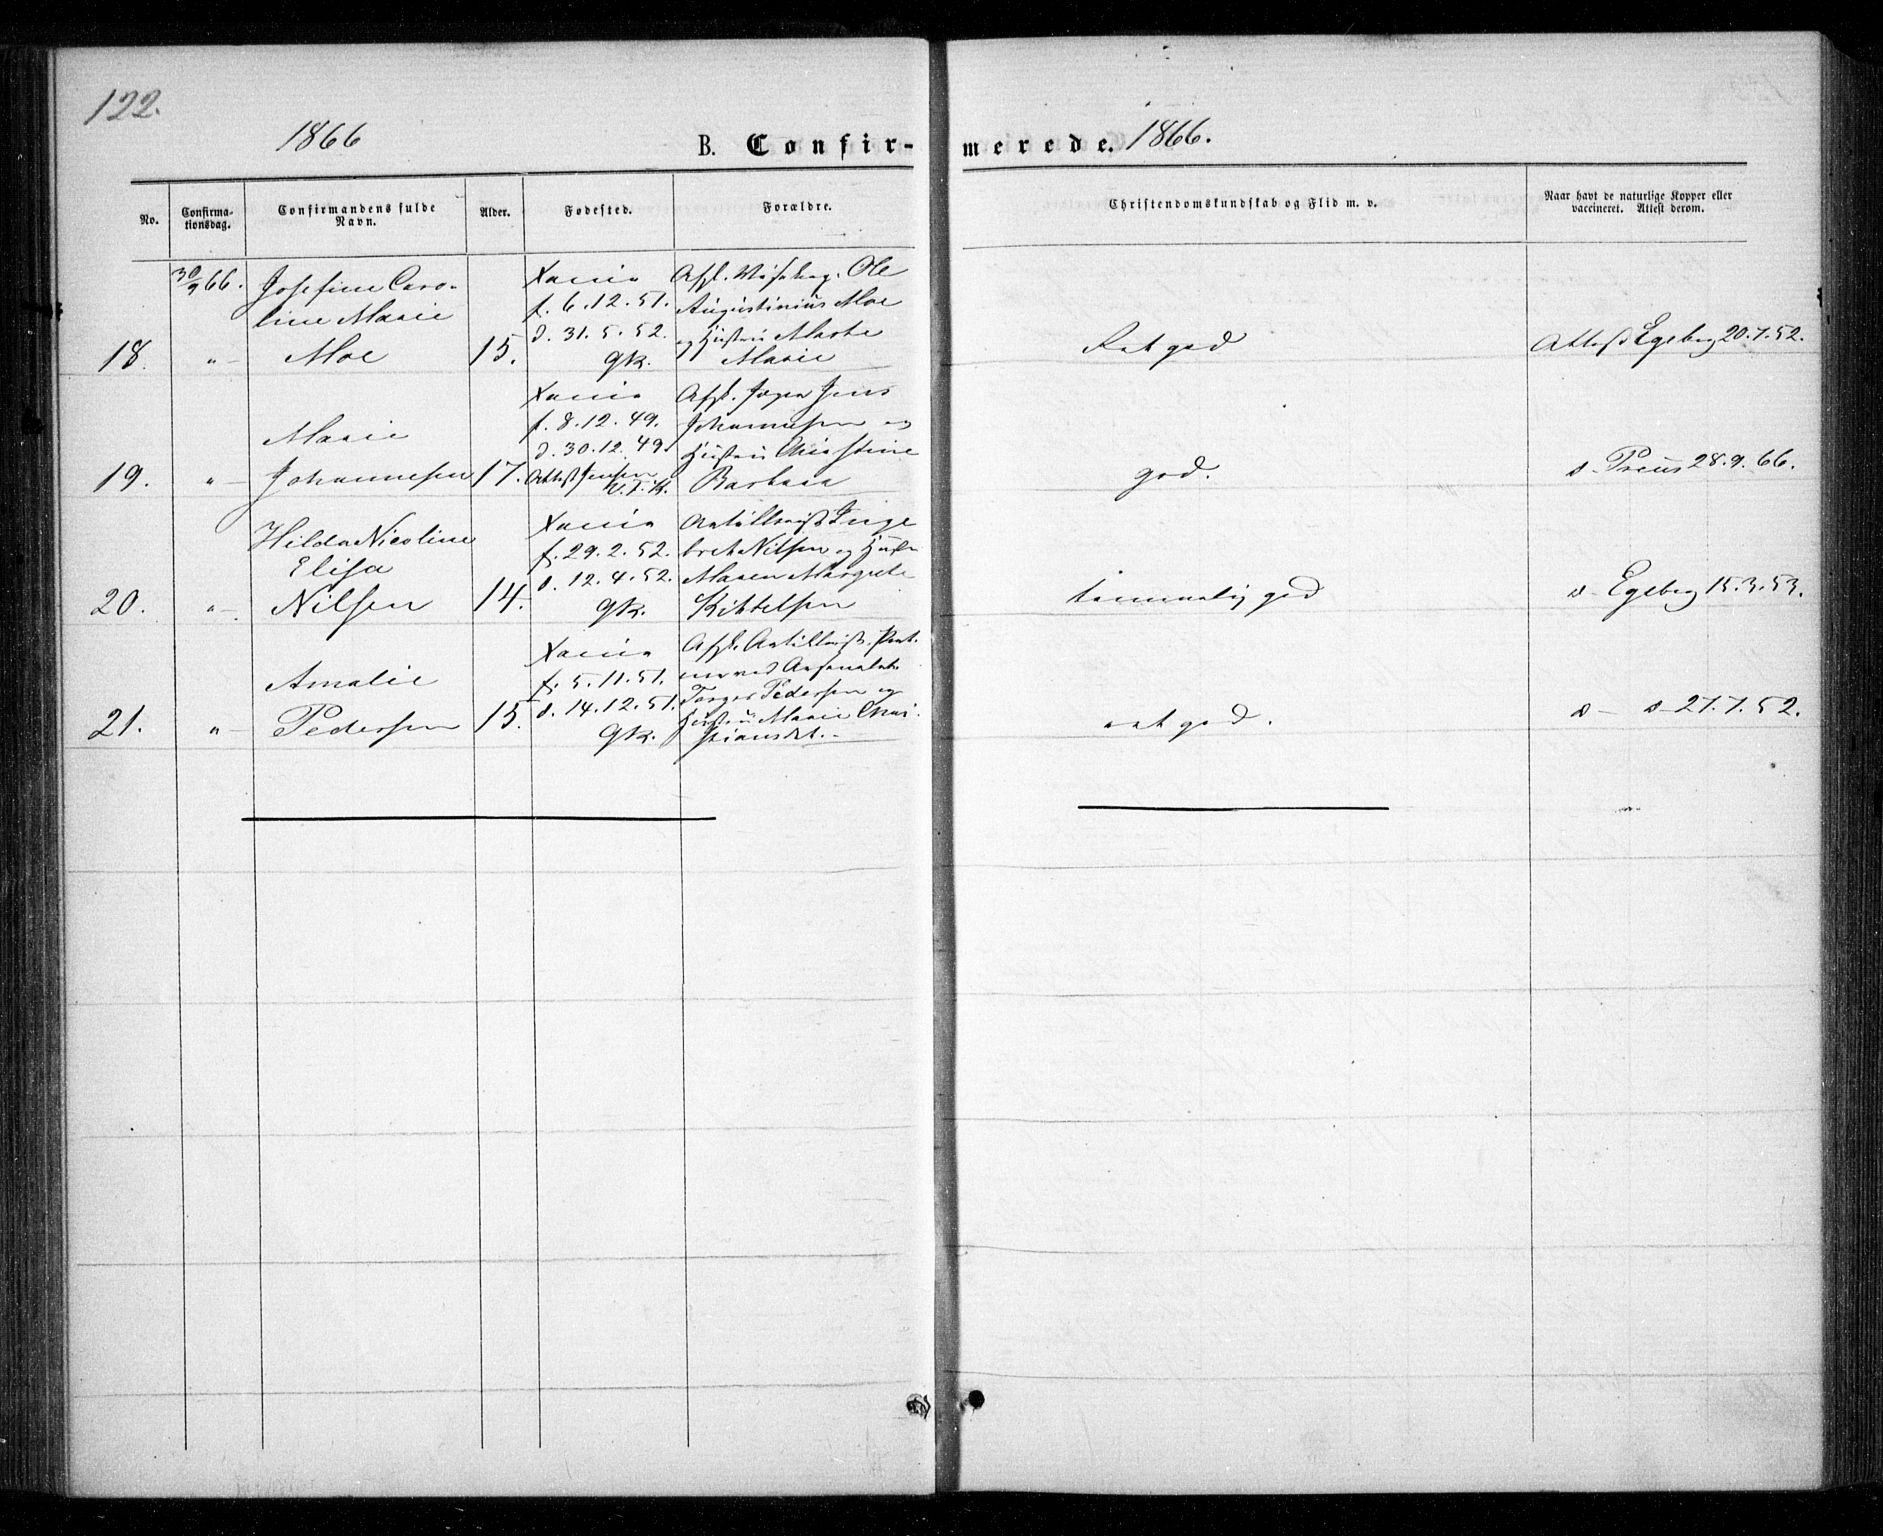 122.
1866
B. Confir-
merede. 1866.
No.
Confirma-
tionsdag.
Confirmandens fulde
Navn.
Alder.
Fødested.
Forældre.
Christendomskundskab og Flid m. v.
Naar havt de naturlige Kopper eller
vaccineret. Attest derom.
18. 30/9 66. "
Josefine Caro-
line Marie
Moe
15.
Xania
f. 6.12.51.
d. 31.5.52.
gk.
Afsk. Ole
Augustinius Moe
og Hustru Marthe
Marie
Ret god
Attest Egeberg 20.7.52.
19. "
Marie
Johannesen
17.
Xania
f. 8.12.49.
d. 30.12.49
Attest Jensen
V.F.K.
Afsk. Jens
Johannesen og
Hustru Christine
Barbara
god.
s- Preus 28.9.66.
20. "
Hilda Nicoline
Elisa
Nilsen
14.
Xania
f. 29.2.52.
d. 12.4.52.
gk.
Artillerist Inge
bret Nilsen og Hustru
Maren Margrete
Kittelsen
temmelig god
s- Egeberg 15.3.53.
21. "
Amalie
Pedersen
15.
Xania
f. 5.11.51.
d. 14.12.51.
gk.
Afsk. Artillerist. Port-
ner ved Arsenalet
Torger Pedersen og
Hustru Marie Chri-
stiansdt.
ret god.
s- s- 27.7.52.